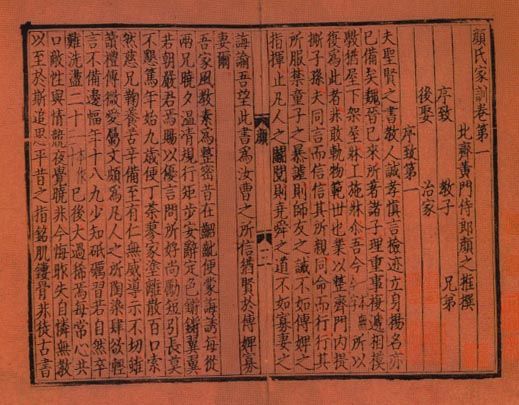 顏氏家訓卷第一
北齊黃門侍郎顏之推撰
序致 教子 兄弟
後娶 治家
序致第一
夫聖賢之書教人誠孝慎言檢迹立身揚名亦
已備矣魏晉已來所著諸子理重事複遞相模
斆猶屋下架屋牀上施牀尒吾今所以
復爲此者非敢軌物範世也業以整齊門內提
撕子孫夫同言而信信其所親同命而行行其
所服禁童子之暴謔則師友之誡不如傅婢之
指揮止凡人之鬬鬩則堯舜之道不如寡妻之
誨諭吾望此書爲汝曹之所信猶賢於傅婢寡
妻爾
吾家風教素爲整密昔在齠齔便蒙誨誘每從
兩兄曉夕溫凊規行矩步安辭定色鏘鏘翼翼
若朝嚴君焉賜以優言問所好尚勵短引長莫
不懇篤年始九歲便丁荼蓼家塗離散百口索
然慈兄鞠養苦辛備至有仁無威導示不切雖
讀禮傳微愛屬文頗爲凡人之所陶染肆欲輕
言不備邊幅年十八九少知砥礪習若自然卒
難洗盪二十已後大過稀焉每常心共
口敵性與情競夜覺曉非今悔昨失自憐無教
以至於斯追思平昔之指銘肌鏤骨非徒古書